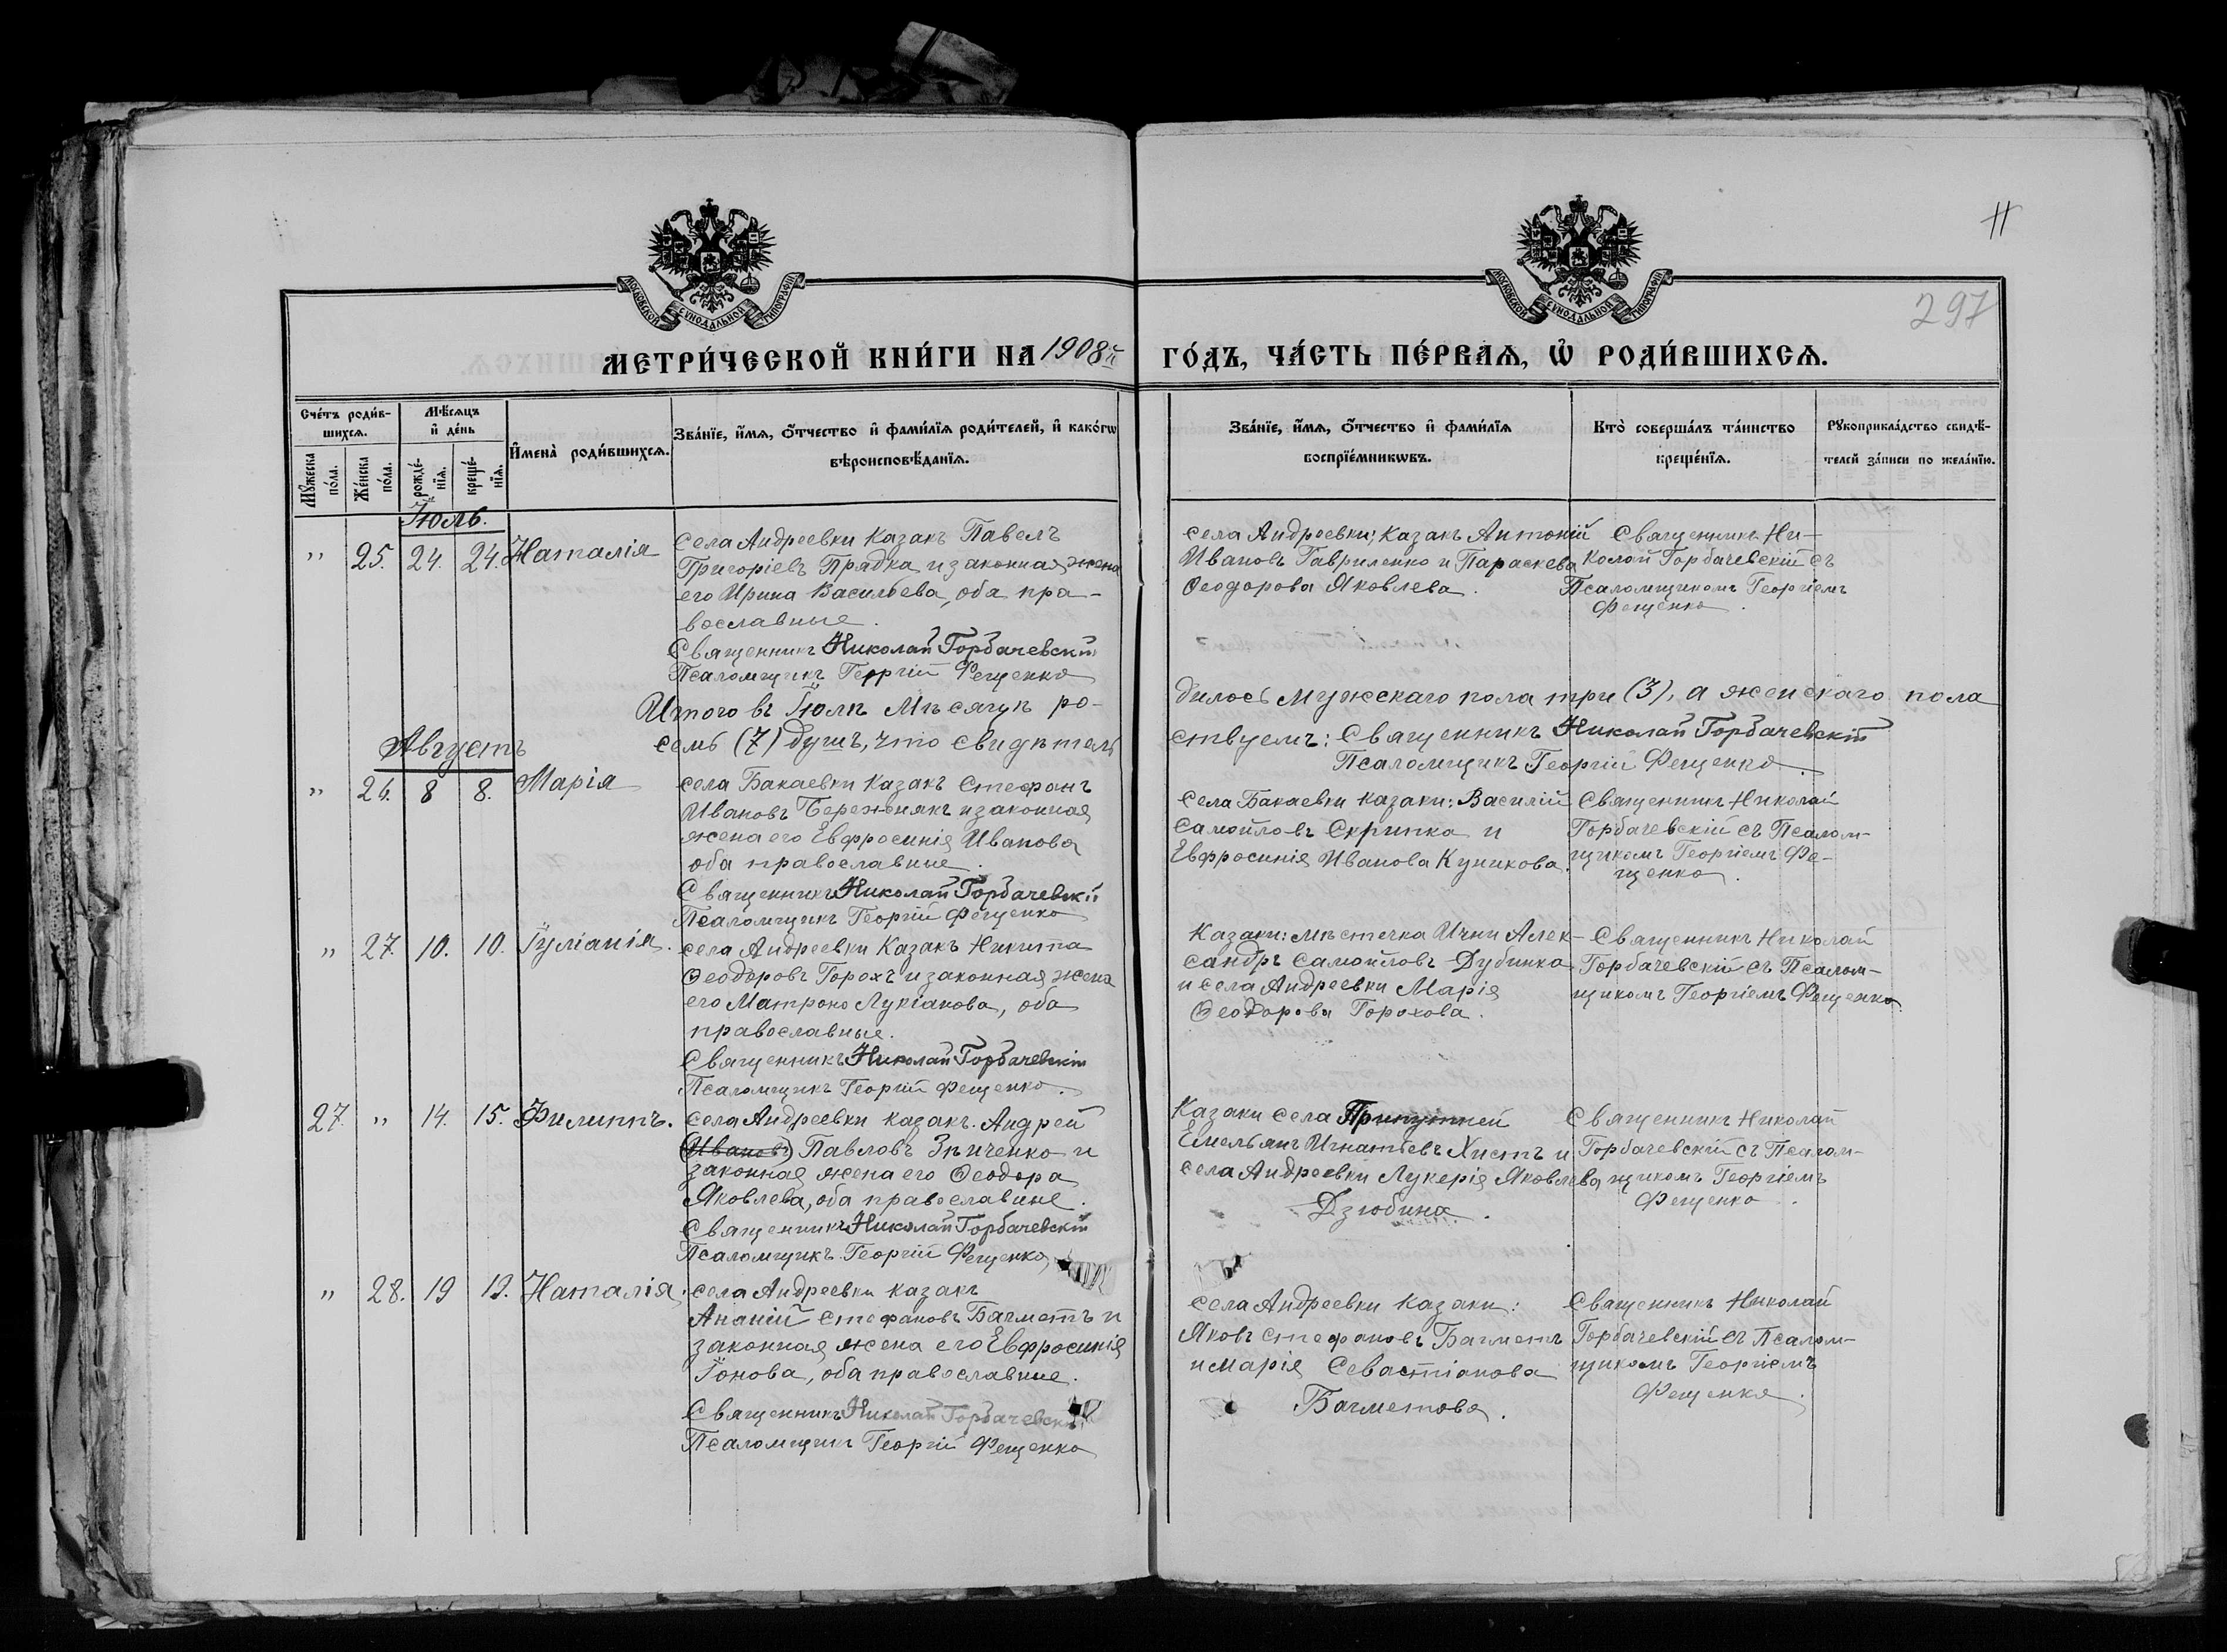 11
297
МОСКОВСКОЙ СѴНОДАЛЬНОЙ ТИПОГРАФІИ
МОСКОВСКОЙ СѴНОДАЛЬНОЙ ТИПОГРАФІИ
МЕТРИ́ЧЕСКОЙ КНИ́ГИ НА 1908й ГО́ДЪ, ЧА́СТЬ ПЕ́РВАЯ, Ѡ҆ РОДИ́ВШИХСѦ.
Сче́тъ роди́в-
шихсѧ.
Мѣ́сѧцъ
и҆ де́нь
И҆мена̀ роди́вшихсѧ.
Зва́нїе, и҆́мѧ, ѻ҆́тчество и҆ фами́лїѧ роди́телей, и҆ како́гѡ
вѣроисповѣ́данїѧ.
Зва́нїе, и҆́мѧ, ѻ҆́тчество и҆ фами́лїѧ
воспрїе́мникѡвъ.
Кто̀ соверша́лъ та́инство
креще́нїѧ.
Рꙋкоприкла́дство свидѣ́-
телей за́писи по жела́нїю.
Мꙋ́жеска
по́ла.
Же́нска
по́ла.
рожде́-
нїѧ.
креще́-
нїѧ.
Іюль.
" 25. 24. 24. Наталія
села Андреевки Казакъ Павелъ
Григоріевъ Прядка и законная жена
его Ирина Васильева, оба пра-
вославные.
Священникъ Николай Горбачевскій
Псаломщикъ Георгій Фещенко
села Андреевки: Казакъ Антоній
Ивановъ Гавриленко и Параскева
Ѳеодорова Яковлева.
Священникъ Ни-
колай Горбачевскій съ
Псаломщикомъ Георгіемъ
Фещенко.
Итого въ Іюлѣ Мѣсяцѣ ро-
дилось Мужскаго пола три (3), а женскаго пола
семь (7) душъ, что свидѣтель
ствуемъ: Священникъ Николай Горбачевскій
Псаломщикъ Георгій Фещенко.
Августъ
" 26. 8 8. Марія
села Бакаевки Казакъ Стефанъ
Ивановъ Бережнякъ и законная
жена его Евфросинія Иванова
оба православные.
Священникъ Николай Горбачевскій
Псаломщикъ Георгій Фещенко
Села Бакаевки казаки: Василій
Самойловъ Скрипка и
Евфросинія Иванова Куникова.
Священникъ Николай
Горбачевскій съ Псалом-
щикомъ Георгіемъ Фе-
щенко.
" 27. 10. 10. Іуліанія.
села Андреевки Казакъ Никита
Ѳеодоровъ Горохъ и законная жена
его Матрона Лукіанова, оба
православные.
Священникъ Николай Горбачевскій
Псаломщикъ Георгій Фещенко.
Казаки: мѣстечка Ични Алек-
сандръ Самойловъ Дубинка
и села Андреевки Марія
Ѳеодорова Горохова.
Священникъ Николай
Горбачевскій съ Псалом-
щикомъ Георгіемъ Фещенко.
27. " 14. 15. Филиппъ.
села Андреевки казакъ Андрей
(Ивановъ) Павловъ Зѣнченко и
законная жена его Ѳеодора
Яковлева, оба православные.
Священникъ Николай Горбачевскій
Псаломщикъ Георгій Фещенко
Казаки села Припутней
Емельянъ Игнатьевъ Хистъ и
села Андреевки Лукерія Яковлева
Дзюбина.
Священникъ Николай
Горбачевскій съ Псалом-
щикомъ Георгіемъ
Фещенко.
" 28. 19 19. Наталія.
села Андреевки казакъ
Ананій Стефановъ Багметъ и
законная жена его Евфросинія
Іонова, оба православные.
Священникъ Николай Горбачевскій
Псаломщикъ Георгій Фещенко
Села Андреевки Казаки:
Яковъ Стефановъ Багметъ
и Марія Севастіанова
Багметова.
Священникъ Николай
Горбачевскій съ Псалом-
щикомъ Георгіемъ
Фещенко.